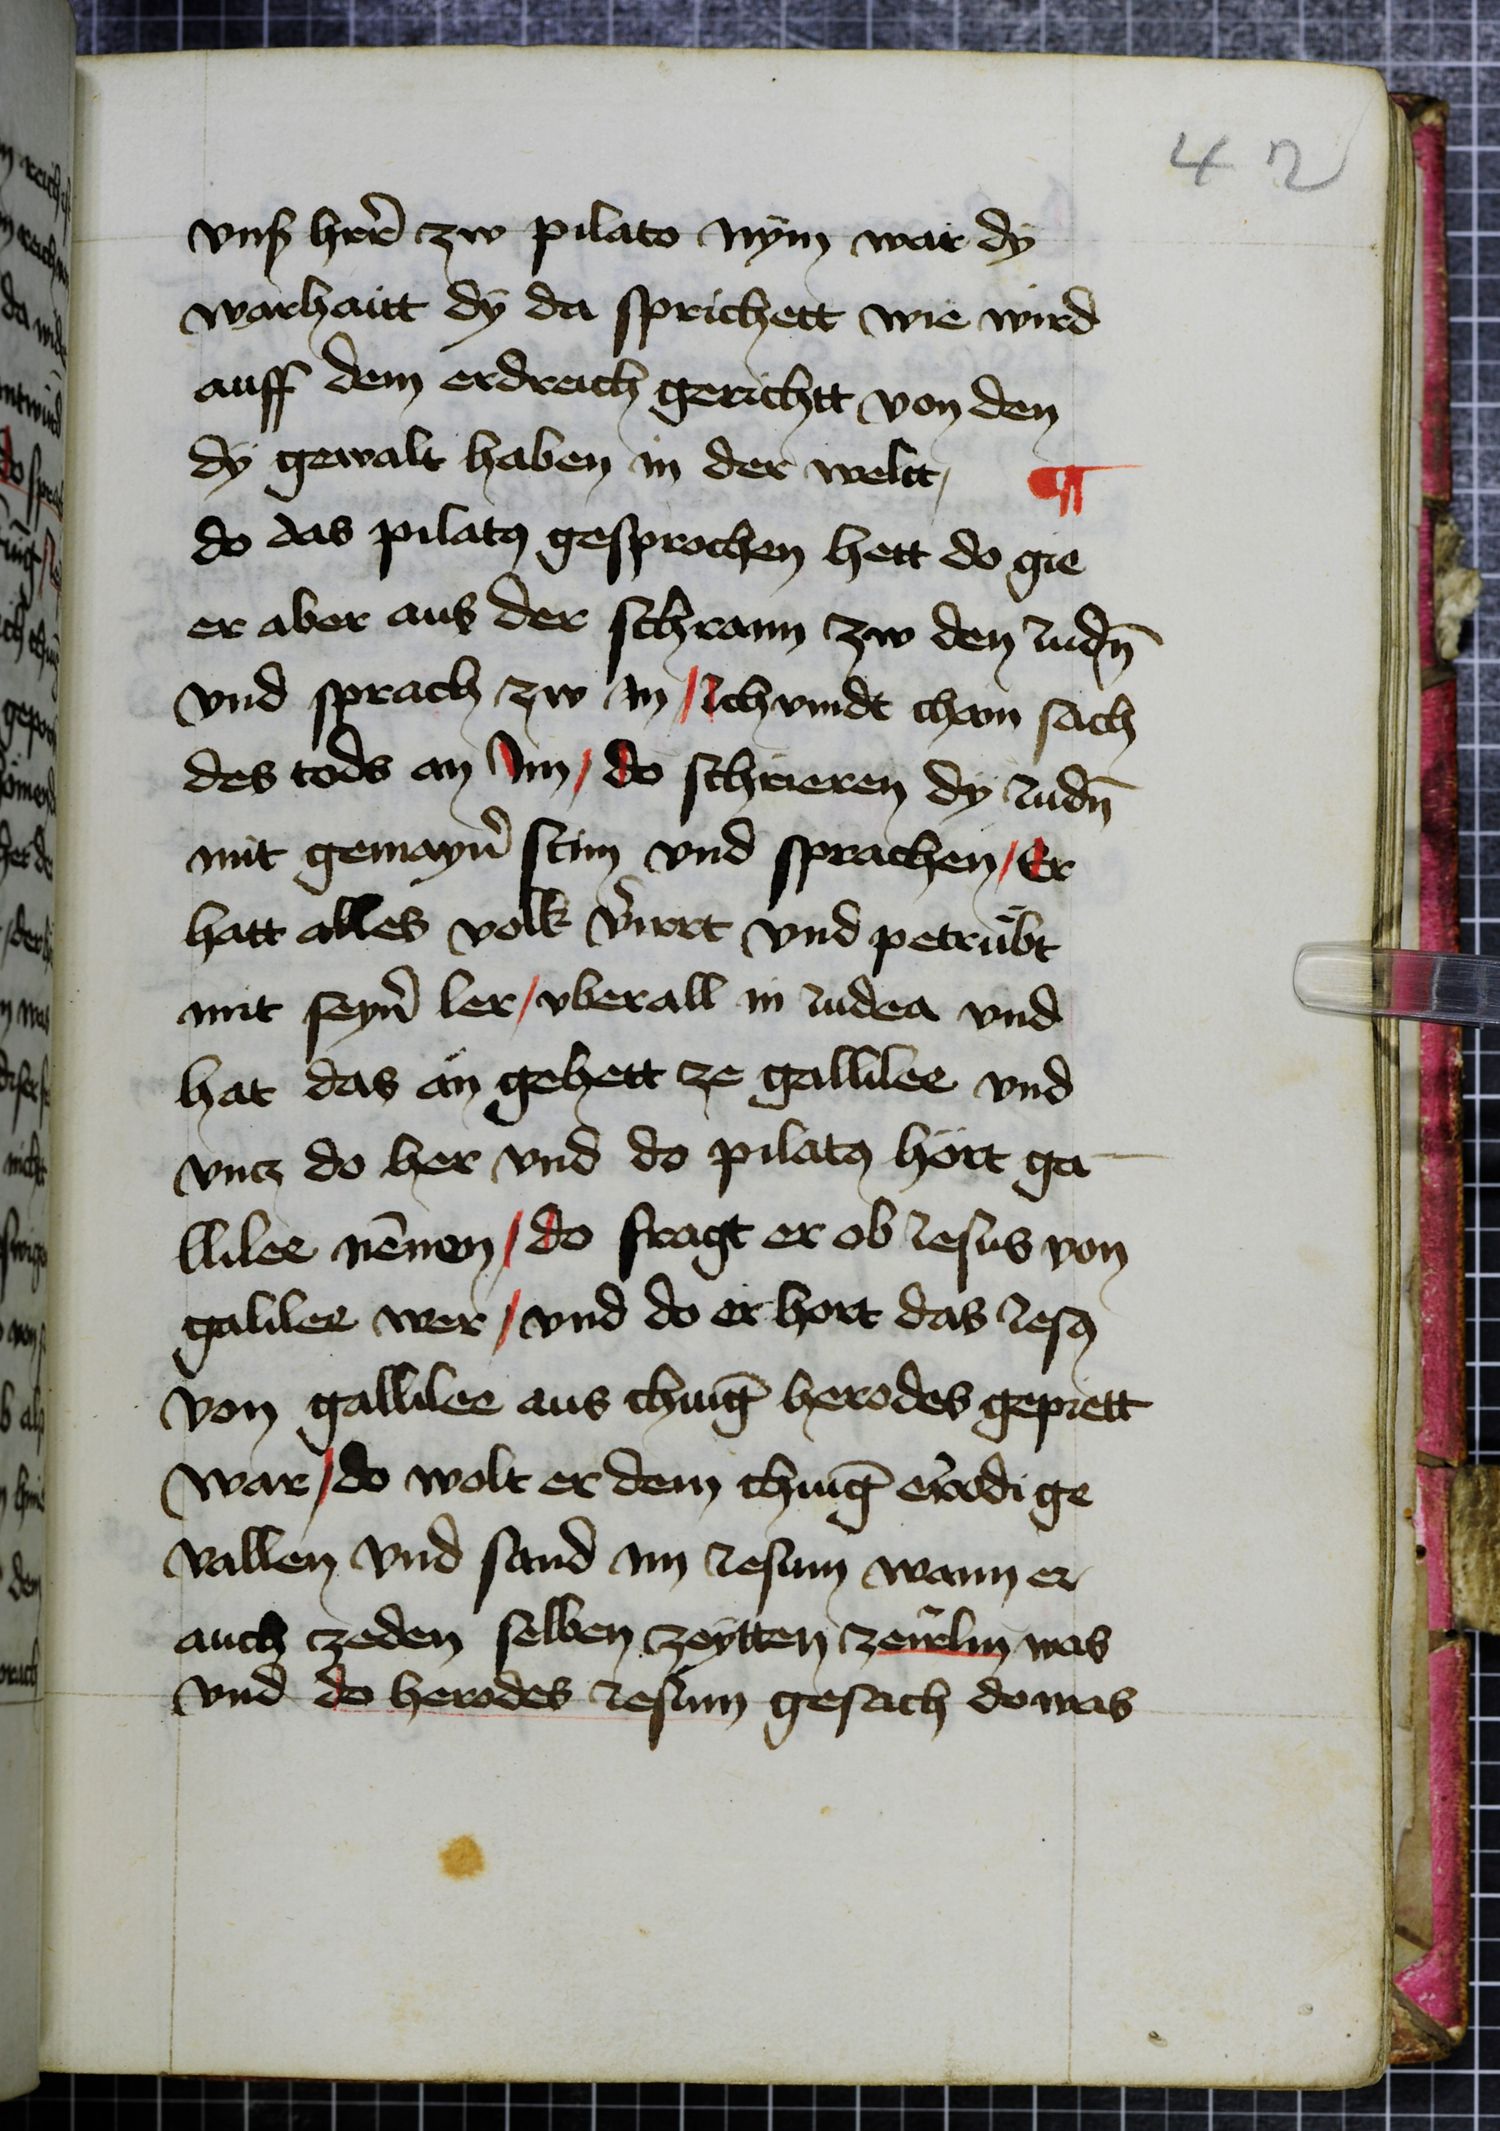 42
vnß herr̄ zw pilato nÿm war dÿ
warhaitt dÿ da sprichett wie wird
auff dem erdreich gerichtt von den
dÿ gewalt haben in der weltt / ¶
do das pilatꝰ gesprochen hett do gie
er aber aus der schrann zw den Iudn̄
vnd sprach zw in / Ich vindt chain sach
des tods an Im / do schrieren dÿ Iudn̄
mit gemayn̄ stim vnd sprachen / Er
hatt alles volk v̄irrt vnd petrübt
mit seyn̄ ler / vberall in Iudea vnd
hat das an gehett ze gallilee vnd
vncz do her vnd do pilatꝰ hört ga
llilee nēnen / do fragt er ob Iesus von
galilee wer / vnd do er hort das Iesꝰ
von gallilee aus chunḡ herodes gepiett
war / do wolt er dem chunḡ er̄odi ge
vallen vnd sand im Iesum wann er
auch zeden selben zeÿtten zeirlm was
vnd do herodes Iesum gesach do was